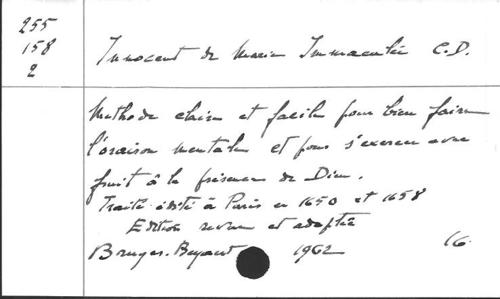 255
158
2
Innocent de Marie Immaculée C.D.
Méthode claire et facile pour bien faire
l'oraison mentale et pour s'exercer avec
fruit à la présence de Dieu.
Traité édité à Paris en 1650 et 1658
Edition revue et adaptée
Bruges. Beyaert 1902 16